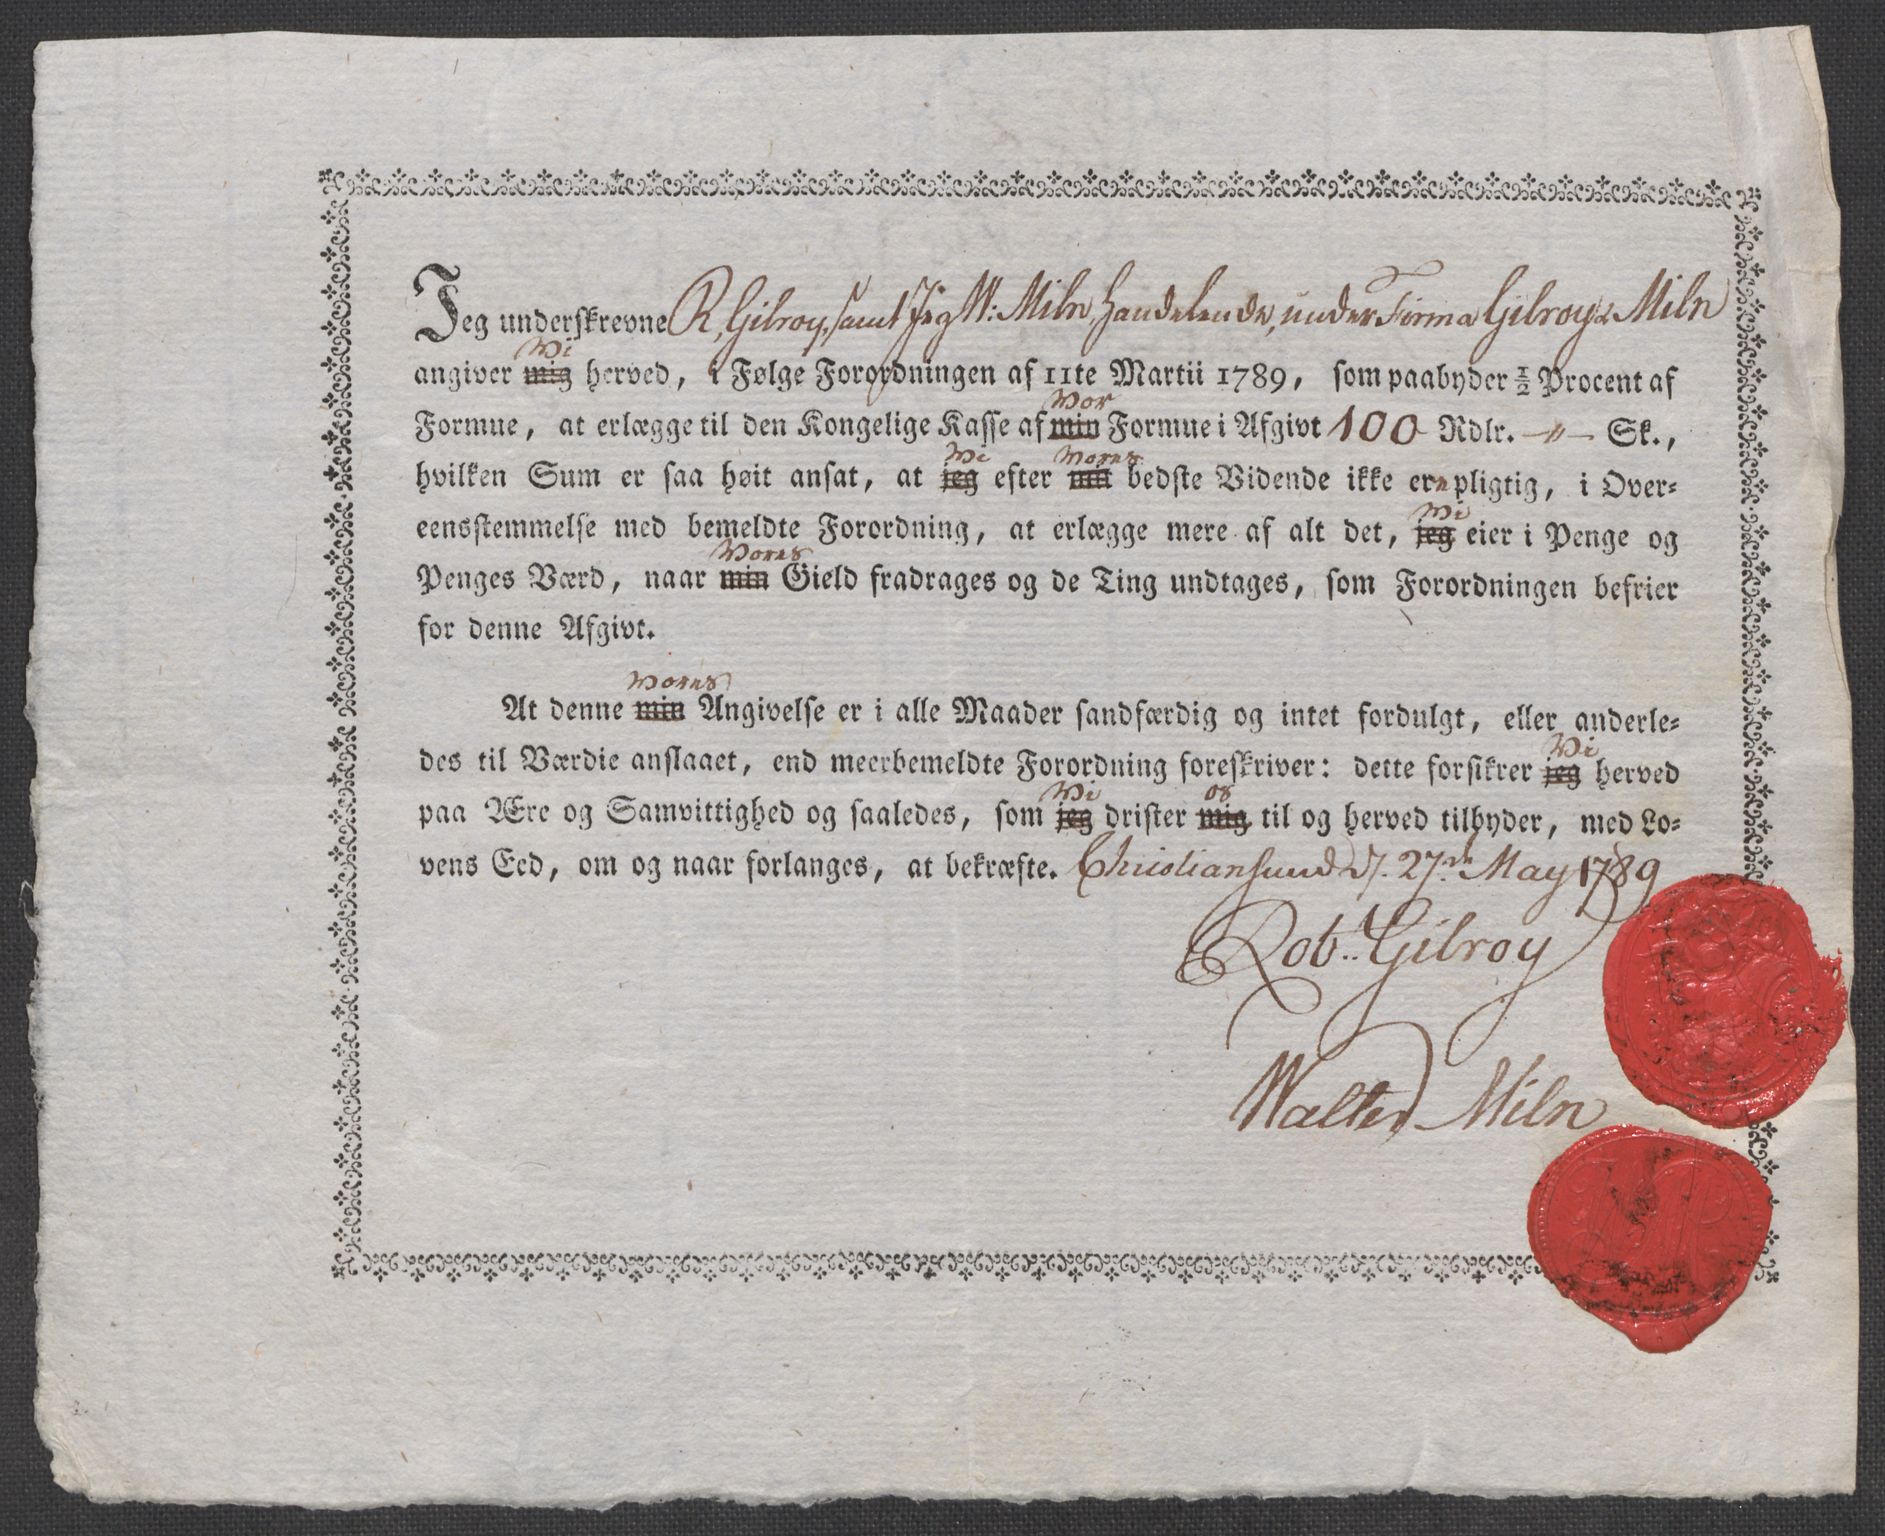 Jeg underskrevne R. Gilroy, samt Jeg W: Miln, handelende, under Firma Gilroy & Miln
Wi
angiver mig herved, i Følge Forordningen af 11te Martii 1789, som paabyder ½ Procent af
Wor
Formue, at erlægge til den Kongelige Kasse af min Formue i Afgivt 100 Rdlr. -〃- Sk.,
Wi Wores
hvilken Sum er saa høit ansat, at jeg efter min bedste Vidende ikke ere pligtig, i Over-
Wi
eensstemmelse med bemeldte Forordning, at erlægge mere af alt det, jeg eier i Penge og
Wores
Penges Værd, naar min Gield fradrages og de Ting undtages, som Forordningen befrier
for denne Afgivt.
Wores
At denne min Angivelse er i alle Maader sandfærdig og intet fordulgt, eller anderle-
Wi
des til Værdie anslaaet, end meerbemeldte Forordning foreskriver: dette forsikrer jeg herved
Wi os
paa Ære og Samvittighed og saaledes, som jeg drister mig til og herved tilbyder, med Lo-
vens Eed, om og naar forlanges, at bekræfte. Christiansund d. 27de May 1789
Rob. Gilroy
Walter Miln